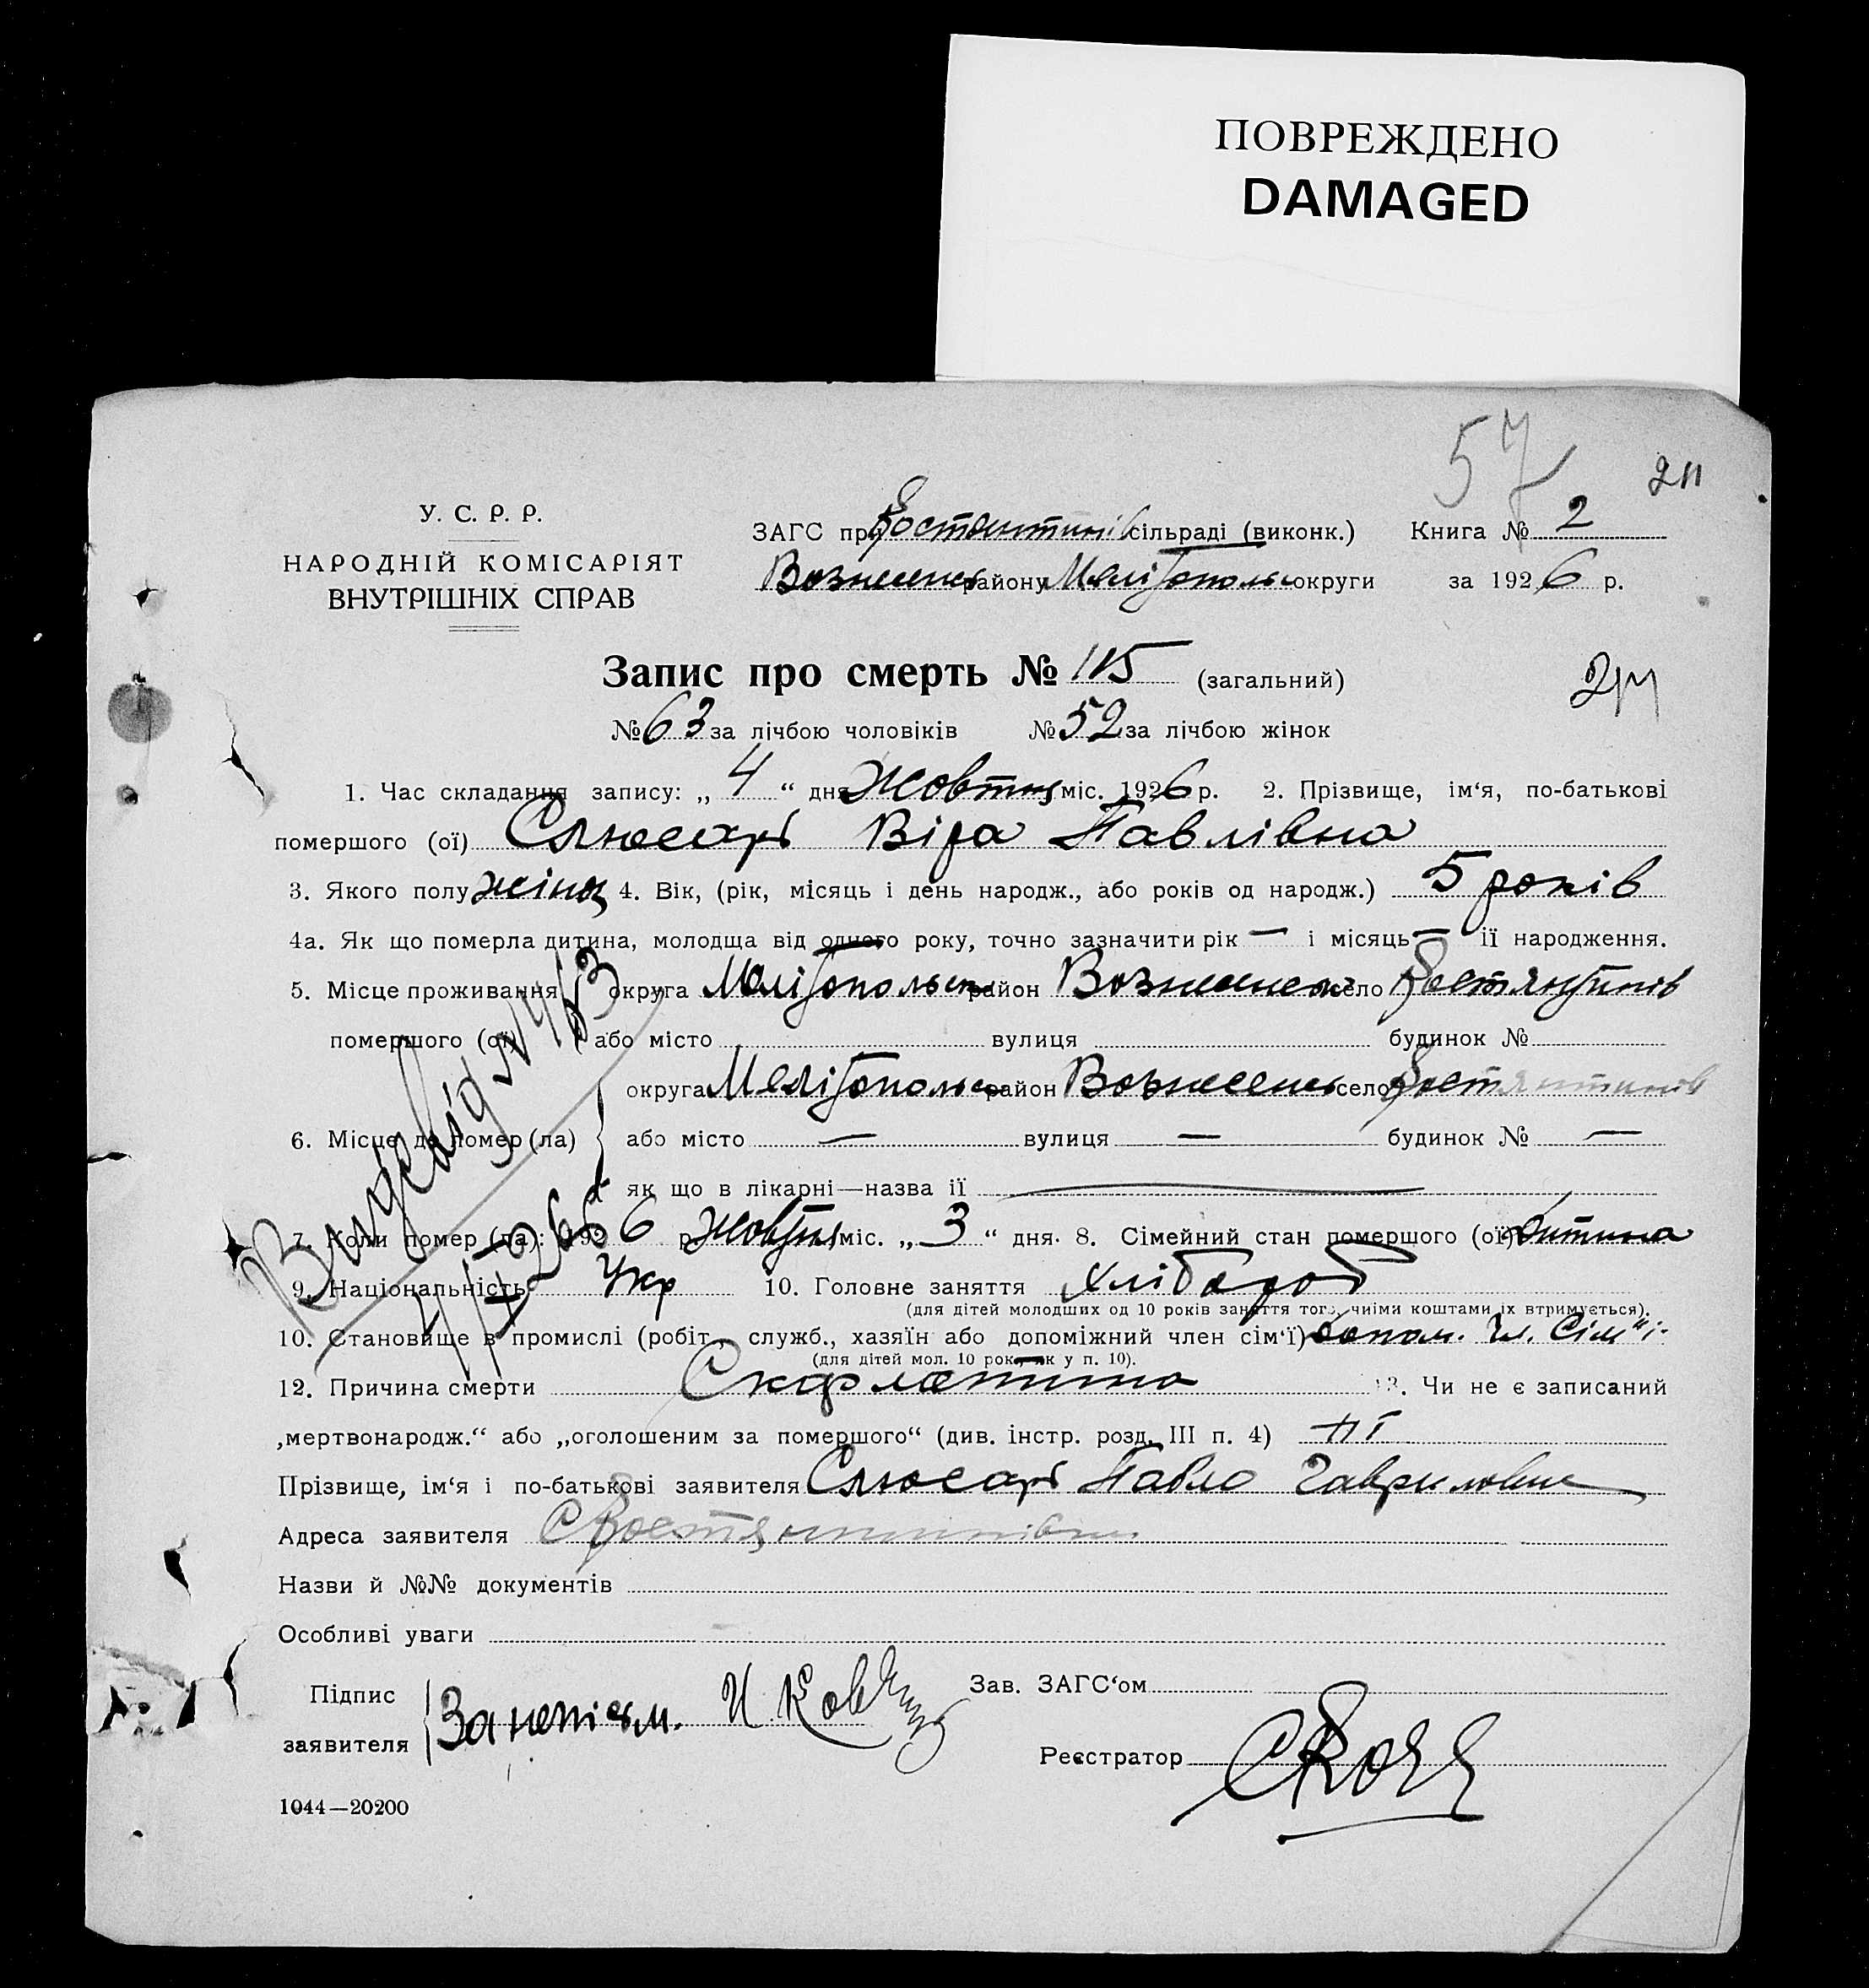 ПОВРЕЖДЕНО
DAMAGED
57
У. С. Р. Р.
НАРОДНІЙ КОМІСАРІЯТ
ВНУТРІШНІХ СПРАВ
ЗАГС при Костянтинів сільраді (виконк.) Книга № 2
Вознесенс району Мелітопольс округи за 1926 р.
Запис про смерть № 115 (загальний)
№ 63 за лічбою чоловіків № 52 за лічбою жінок
1. Час складання запису: „ 4 “ дня Жовтня міс. 1926 р. 2. Прізвище, ім‘я, по-батькові
помершого (ої) Слюсарь Віра Павлівна
3. Якого полу жіноч 4. Вік, (рік, місяць і день народж., або років од народж.) 5 років
4а. Як що померла дитина, молодща від одного року, точно зазначити рік — і місяць — її народження.
5. Місце проживання округа Мелітопольськ район Вознесенськ село Костянтинів
помершого (ої) або місто вулиця будинок №
округа Мелітопольс район Вознесенс село Костянтинів
6. Місце де помер (ла) або місто — вулиця — будинок № —
як що в лікарні—назва її —
7. Коли помер (ла): 1926 р. Жовтня міс. „ 3 “ дня. 8. Сімейний стан помершого (ої) дитина
9. Національність Укр 10. Головне заняття хлібороб
(для дітей молодших од 10 років заняття того, чиїми коштами їх втримується).
10. Становище в промислі (робіт., служб., хазяїн або допоміжний член сім‘ї) допом. чл. сім"ї.
(для дітей мол. 10 рок., як у п. 10).
12. Причина смерти Скарлатина 13. Чи не є записаний
„мертвонародж.“ або „оголошеним за помершого“ (див. інстр. розд. III п. 4) ні
Прізвище, ім‘я і по-батькові заявителя Слюсарь Павло Гаврилович
Адреса заявителя С Костянтинівка
Назви й №№ документів
Особливі уваги
Підпис
заявителя За неписьм. И
Зав. ЗАГС‘ом
Реєстратор
1044—20200